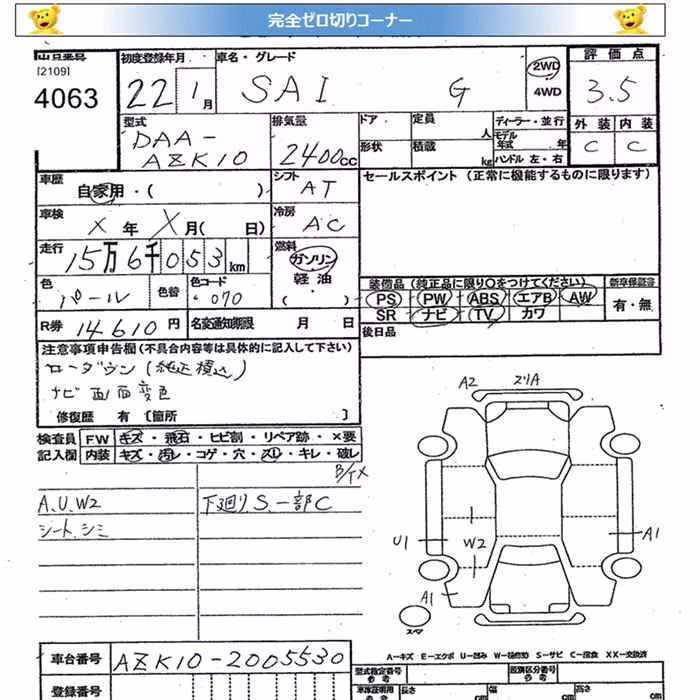 完全ゼロ切りコーナー
[2109]
4063
初度登録年月
22 1月
車名・グレード
SAI G
2WD
4WD
評価点
3.5
外装 内装
C C
型式
DAA-
AZK10
排気量
2400cc
ドア 定員 人
形状 積載 kg
ディーラー・並行
モデル年式 年
ハンドル 左・右
車歴
自家用・( )
シフト
AT
セールスポイント (正常に機能するものに限ります)
車検
X年 X月( 日)
冷房
AC
走行
15万6千053km
燃料
ガソリン
軽油
( )
色
パール
色替
色コード
070
装備品 (純正品に限り○をつけてください)
PS PW ABS エアB AW
SR ナビ TV カワ
新車保証書
有・無
R券 14610円
名変通知期限 月 日
後日品
注意事項申告欄 (不具合内容等は具体的に記入して下さい)
ローダウン(純正積込)
ナビ画面変色
修復歴 有 〔箇所 〕
検査員
記入欄
FW キズ・飛石・ヒビ割・リペア跡・×要
内装 キズ・汚レ・コゲ・穴・スレ・キレ・破レ
A.U.W2
シート.シミ
下廻りS.一部C
A2
U1
W2
A1
A1
スペア
A−キズ E−エクボ U−凹み W−補修跡 S−サビ C−腐食 XX−交換済
車台番号
AZK10-2005530
登録番号
型式指定番号
類別区分番号
長さ cm
幅 cm
高さ cm